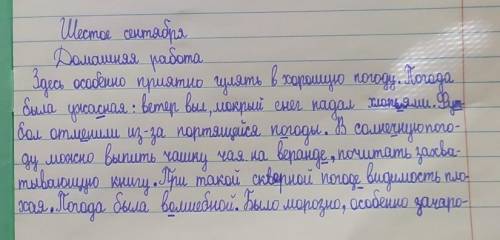 Шестое сентября
Домашняя работа
Здесь особенно приятно гулять в хорошую погоду. Погода
была ужасная: ветер выл, мокрый снег падал хлопьями. Фут
бол отменили из-за портящейся погоды. В солнечную пого-
ду можно выпить чашку чая на веранде, почитать захва-
тывающую книгу. При такой скверной погоде видимость пло-
хая. Погода была волшебной. Было морозно, особенно за горо-